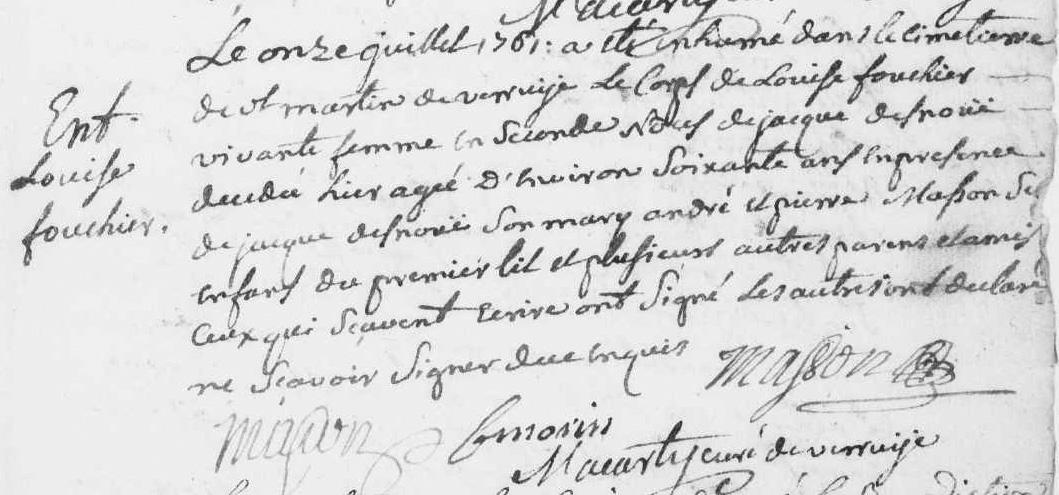 Ent.
Louise
fouchier.
Le onze juillet 1761: a eté inhumé dans le cimetierre
de st martin de verruije Le Corps de Louise fouchier
vivante femme en seconde Noces de jacque desnoüe
decedée hier ageé d'environ soixante ans en presence
de jacque desnoüe son mary andré et pierre Masson ses
enfans du premier lit et plusieurs autres parens et amis
Ceux qui sçavent ecrire ont signé Les autres ont declaré
ne sçavoir signer de ce enquis
Masson
Masson morin
Macarty curé de verruije